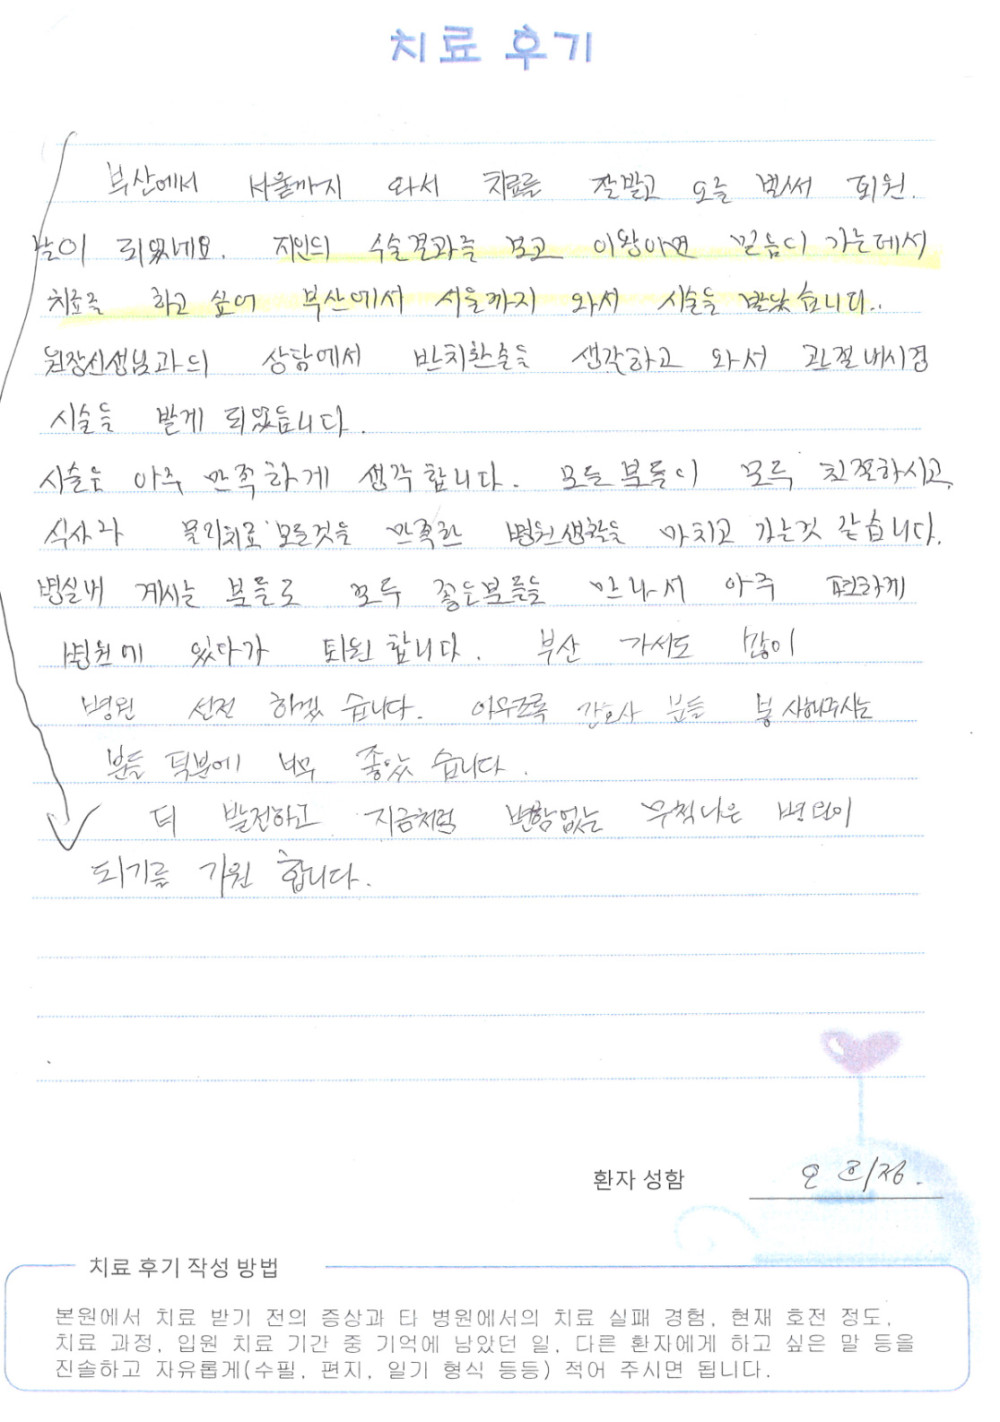 치료 후기
부산에서 서울까지 와서 치료를 잘받고 오늘 벌써 퇴원.
날이 되었네요. 지인의 수술결과를 보고 이왕이면 믿음이 가는데서
치료를 하고 싶어 부산에서 서울까지 와서 시술을 받았습니다..
원장선생님과의 상담에서 반치환술을 생각하고 와서 관절내시경
시술을 받게 되었읍니다.
시술은 아주 만족하게 생각합니다. 모든분들이 모두 친절하시고,
식사과 물리치료 모든것을 만족한 병원생활을 마치고 가는것 같습니다.
병실내 계시는 분들도 모두 좋은분들을 만나서 아주 편하게
병원에 있다가 퇴원합니다. 부산 가서도 많이
병원 선전 하겠습니다. 아무쪼록 간호사 분들 봉사해주시는
분들 덕분에 너무 좋았습니다.
더 발전하고 지금처럼 변함없는 병원이
되기를 기원 합니다.
환자 성함 오
치료 후기 작성 방법
본원에서 치료 받기 전의 증상과 타 병원에서의 치료 실패 경험, 현재 호전 정도,
치료 과정, 입원 치료 기간 중 기억에 남았던 일, 다른 환자에게 하고 싶은 말 등을
진솔하고 자유롭게(수필, 편지, 일기 형식 등등) 적어 주시면 됩니다.